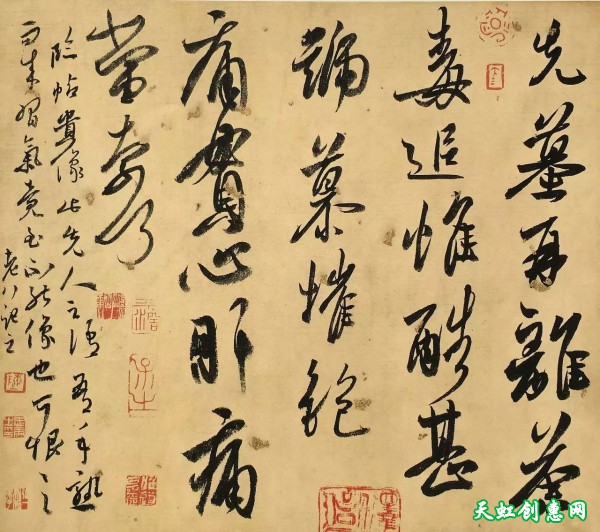 先墓再離荼
毒追惟酷甚
號慕摧絕
痛貫心肝痛
當奈何
臨帖貴像此先人之語吾手熟
來習氣竟至不能像也可恨
老八記之
天虹创意网